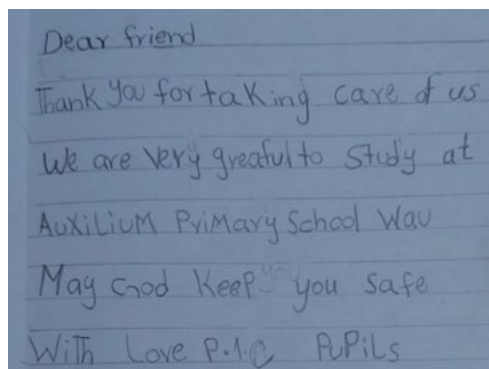 Dear friend
Thank you for taking care of us
We are very greaful to study at
AUXILIUM PRIMARY School Wau
May God Keep you safe
With Love P.1.C PUPILS